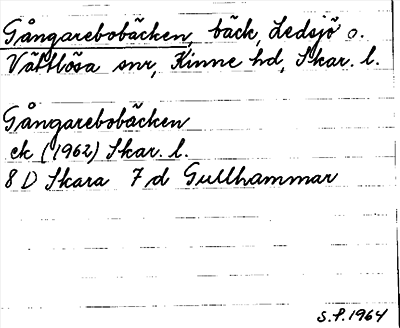 Gångarebobäcken, bäck, Ledsjö o.
Vättlösa snr, Kinne hd, Skar. l.
Gångarebobäcken
ek (1962) Skar. l.
8 D Skara 7 d Gullhammar
S.P. 1964